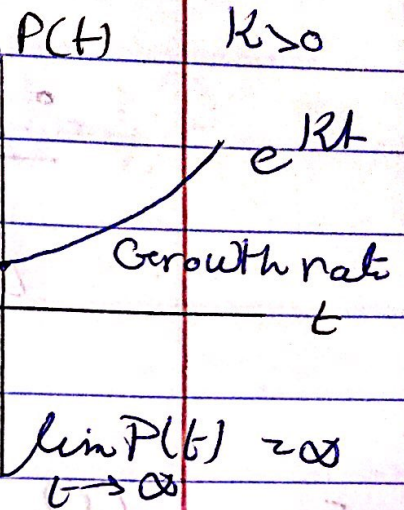 P(t) K>0
e^{Kt}
Growth rate
t
lim P(t) = ∞
t→∞